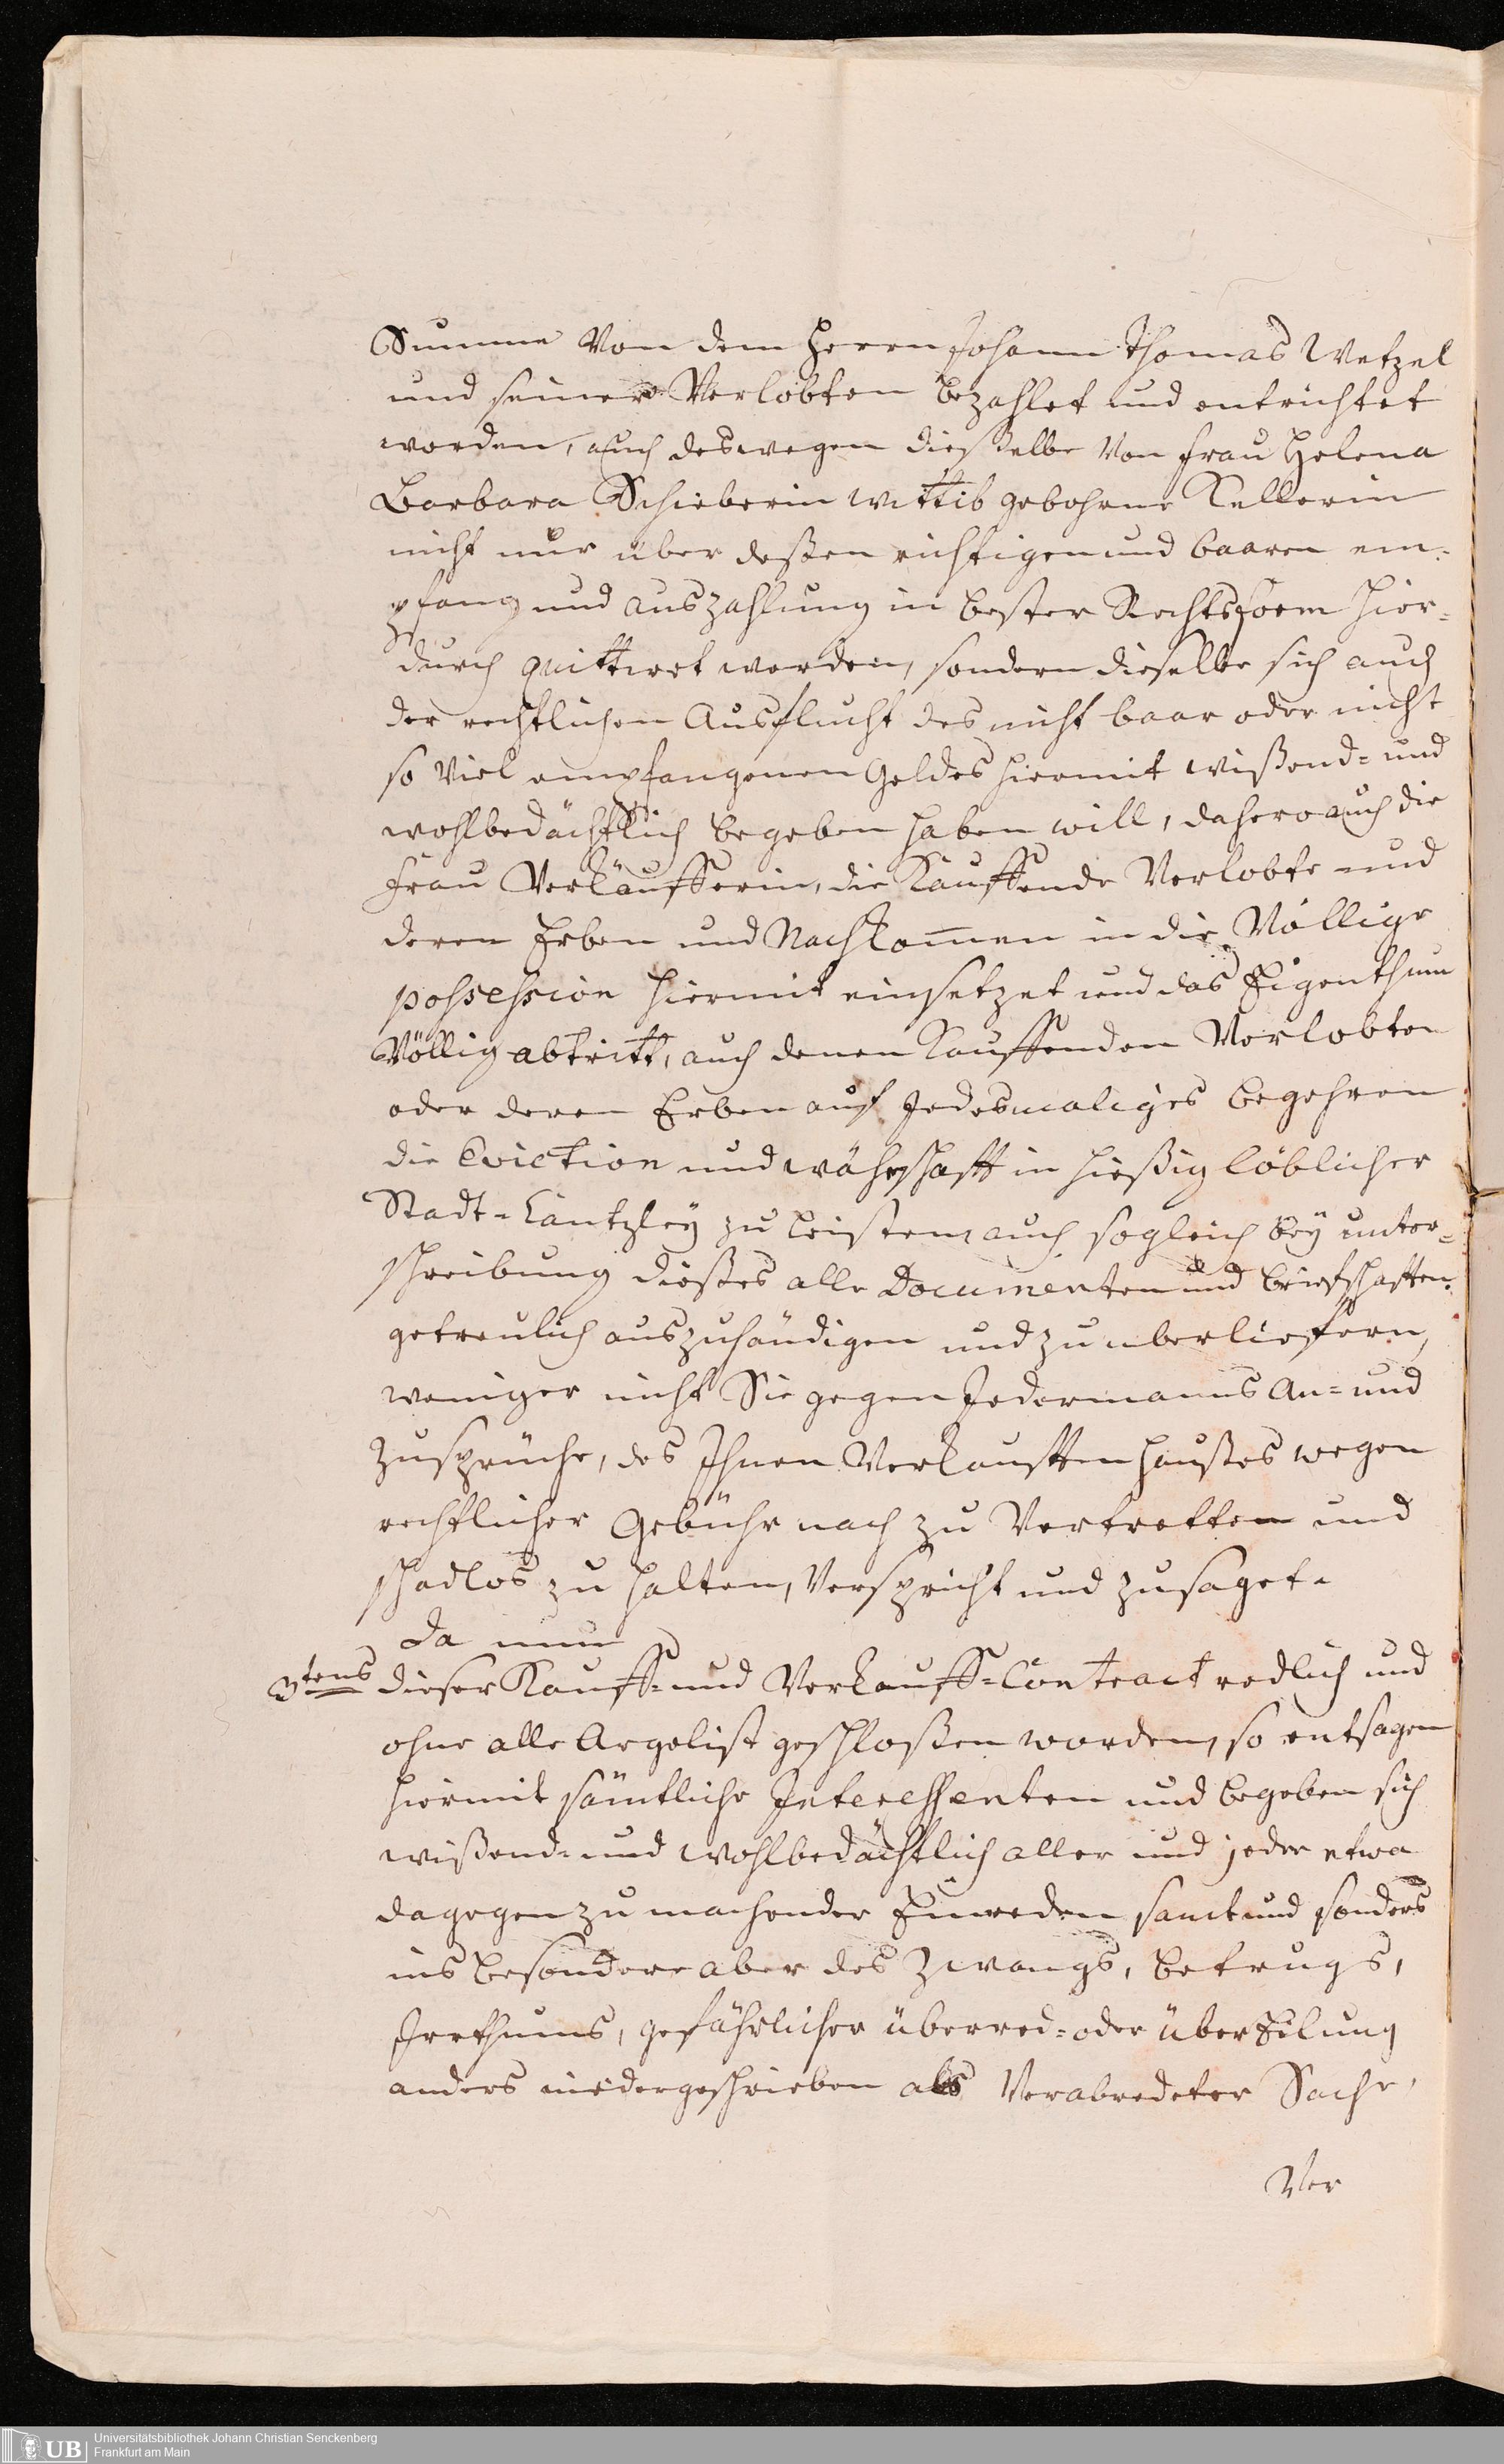 Summe Von dem Herrn Johann Thomas Wetzel
und seiner Verlobten bezahlet und entrichtet
worden, auch deswegen dießelbe Von Frau Helena
Barbara Schieberin Wittib gebohrne Kellerin
nicht nur über deßen richtigen und baaren em-
pfang und auszahlung in bester Rechtsform hier-
durch quittiret worden, sondern dieselbe sich auch
der rechtlichen Ausflucht des nicht baar oder nicht
so Viel empfangenen Geldes hiermit wißend= und
wohlbedächtlich begeben haben will, dahero auch die
Frau Verkäufferin, die Kauffende Verlobte und
deren Erben und Nachkom̄en in die Völlige
possession hiermit einsetzet und das Eigenthum
Völlig abtritt, auch denen Kauffenden Verlobten
oder deren Erben auf Jedesmaliges begehren
die Eviction und währschafft in hießig löblicher
Stadt-Cantzley zu leisten, auch sogleich bey unter=
schreibung dießes alle Documenten und briefschafften
getreulich auszuhändigen und zu uberliefern,
weniger nicht Sie gegen Jedermanns An= und
Zusprüche, des Ihnen Verkaufften Haußes wegen
rechtlicher Gebühr nach zu Vertretten und
schadlos zu halten, Verspricht und zusaget.
Da nun
3tens dieser Kauff= und Verkauff=Contract redlich und
ohne alle Argelist geschloßen worden, so entsagen
hiermit sämtliche Interessenten und begeben sich
wißend= und wohlbedächtlich aller und jeder etwa
dagegen zu machender Einreden samt und sonders
ins besondere aber des Zwangs, betrugs,
Irrthums, gefährlicher überred= oder überEilung
anders niedergeschrieben als Verabredeter Sache,
Ver
UB
Universitätsbibliothek Johann Christian Senckenberg
Frankfurt am Main